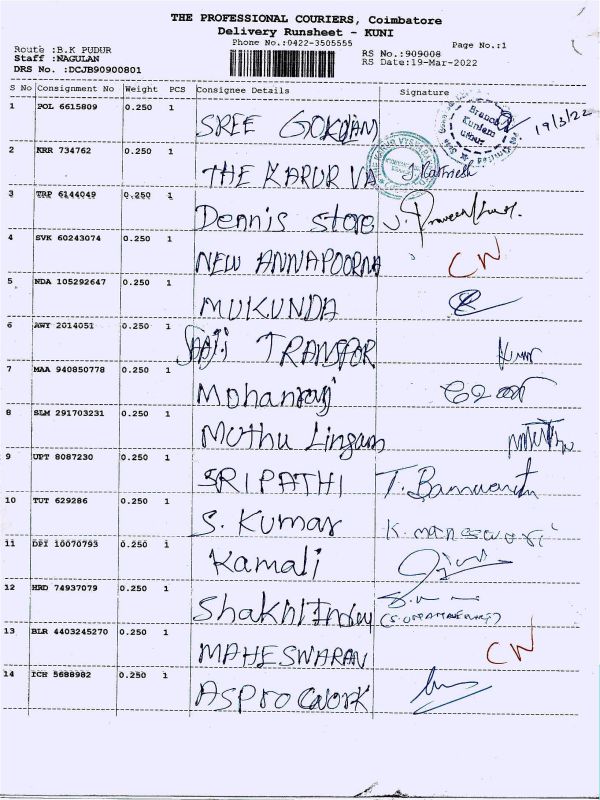 THE PROFESSIONAL COURIERS, Coimbatore
Delivery Runsheet - KUNI
Phone No.:0422-3505555
Page No.:1
Route :B.K PUDUR
Staff :NAGULAN
DRS No. :DCJB90900801
RS No.:909008
RS Date:19-Mar-2022
S No Consignment No Weight PCS Consignee Details Signature
1 POL 6615809 0.250 1 SREE GOKULAM 19/3/22
2 KRR 734762 0.250 1 THE KARUR VA
3 TRP 6144049 0.250 1 Dennis store
4 SVK 60243074 0.250 1 NEW ANNAPOORNA CN
5 NDA 105292647 0.250 1 MUKUNDA
6 AWY 2014051 0.250 1 TRANSPOR Kumar
7 MAA 940850778 0.250 1 Mohanraj
8 SLM 291703231 0.250 1 Muthu Lingam
9 UPT 8087230 0.250 1 SRIPATHI
10 TUT 629286 0.250 1 S. Kumar K. maheswari
11 DPI 10070793 0.250 1 Kamali
12 HRD 74937079 0.250 1 Shakhi Inday
13 BLR 4403245270 0.250 1 MAHESWARAN CN
14 ICH 5688982 0.250 1 Aspro cwork